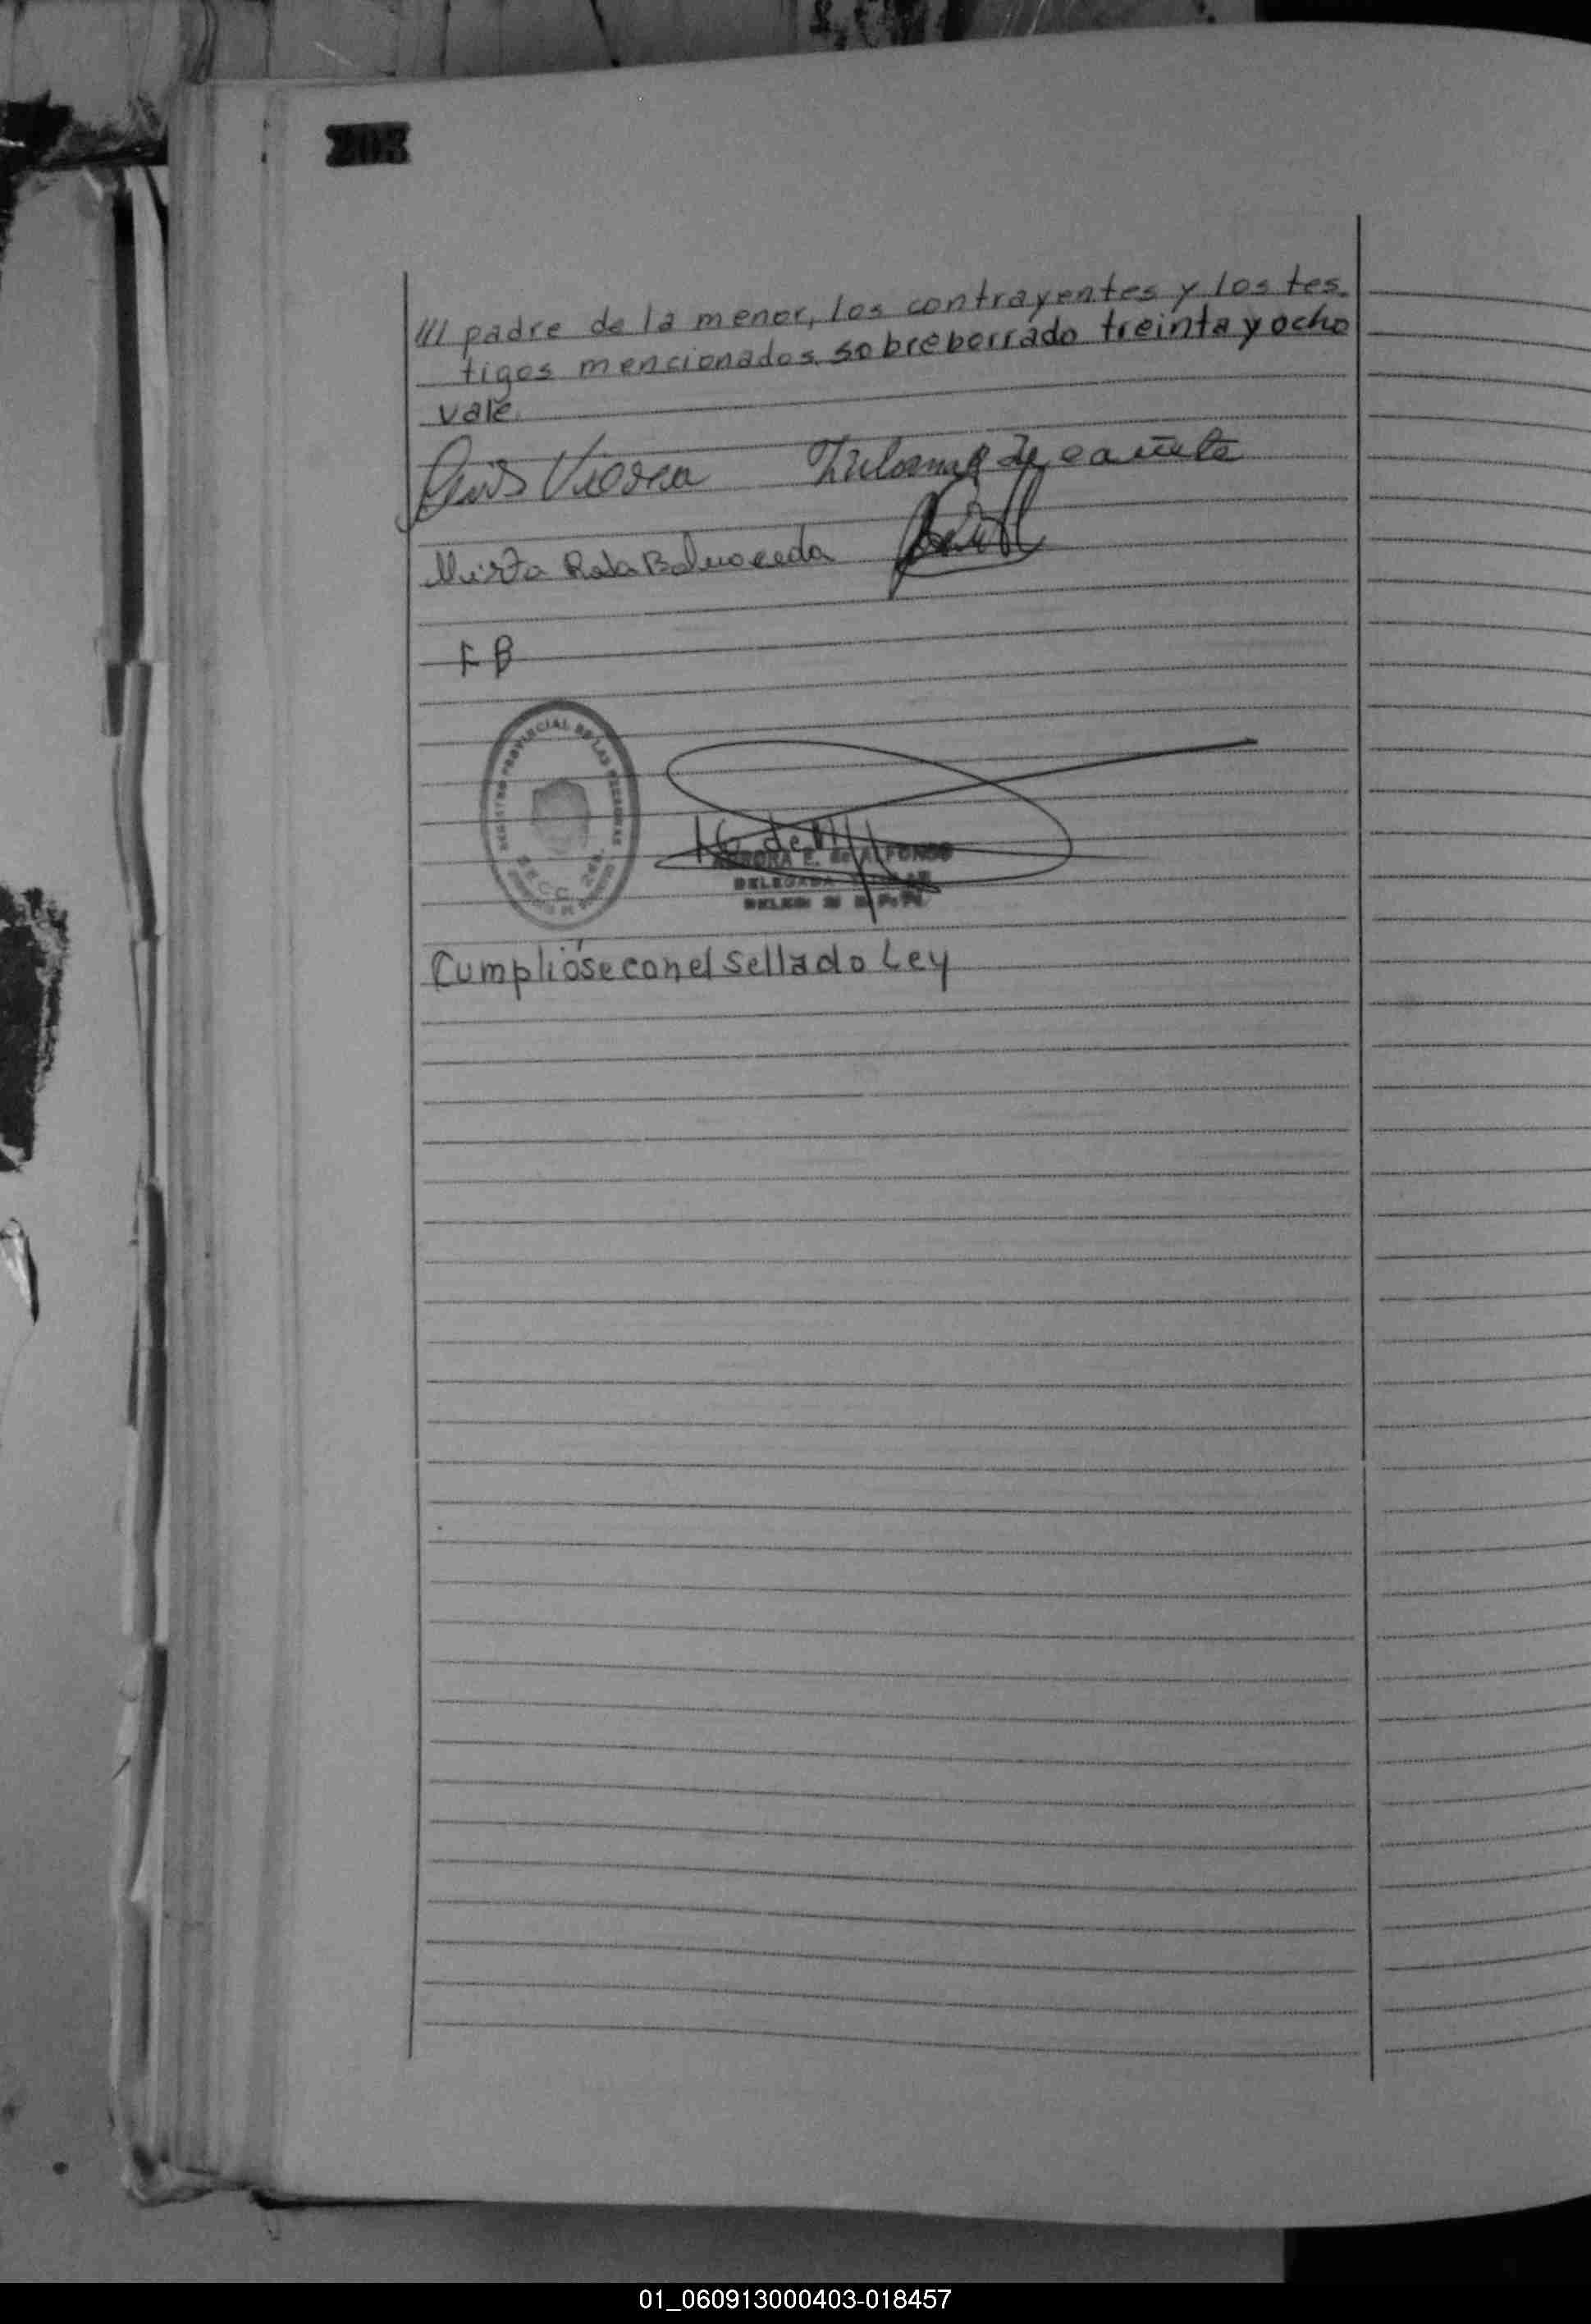 203
/// padre de la menor, los contrayentes y los tes-
tigos mencionados. sobreborrado treinta y ocho
vale.
Luis Viossa Zulema de cañete
Mirta Rosa Balmaceda
F B
REGISTRO PROVINCIAL DE LAS PERSONAS
SECC. 2da.
E. de ALFONSO
DELEGADA
Cumplióse con el sellado Ley
01_060913000403-018457